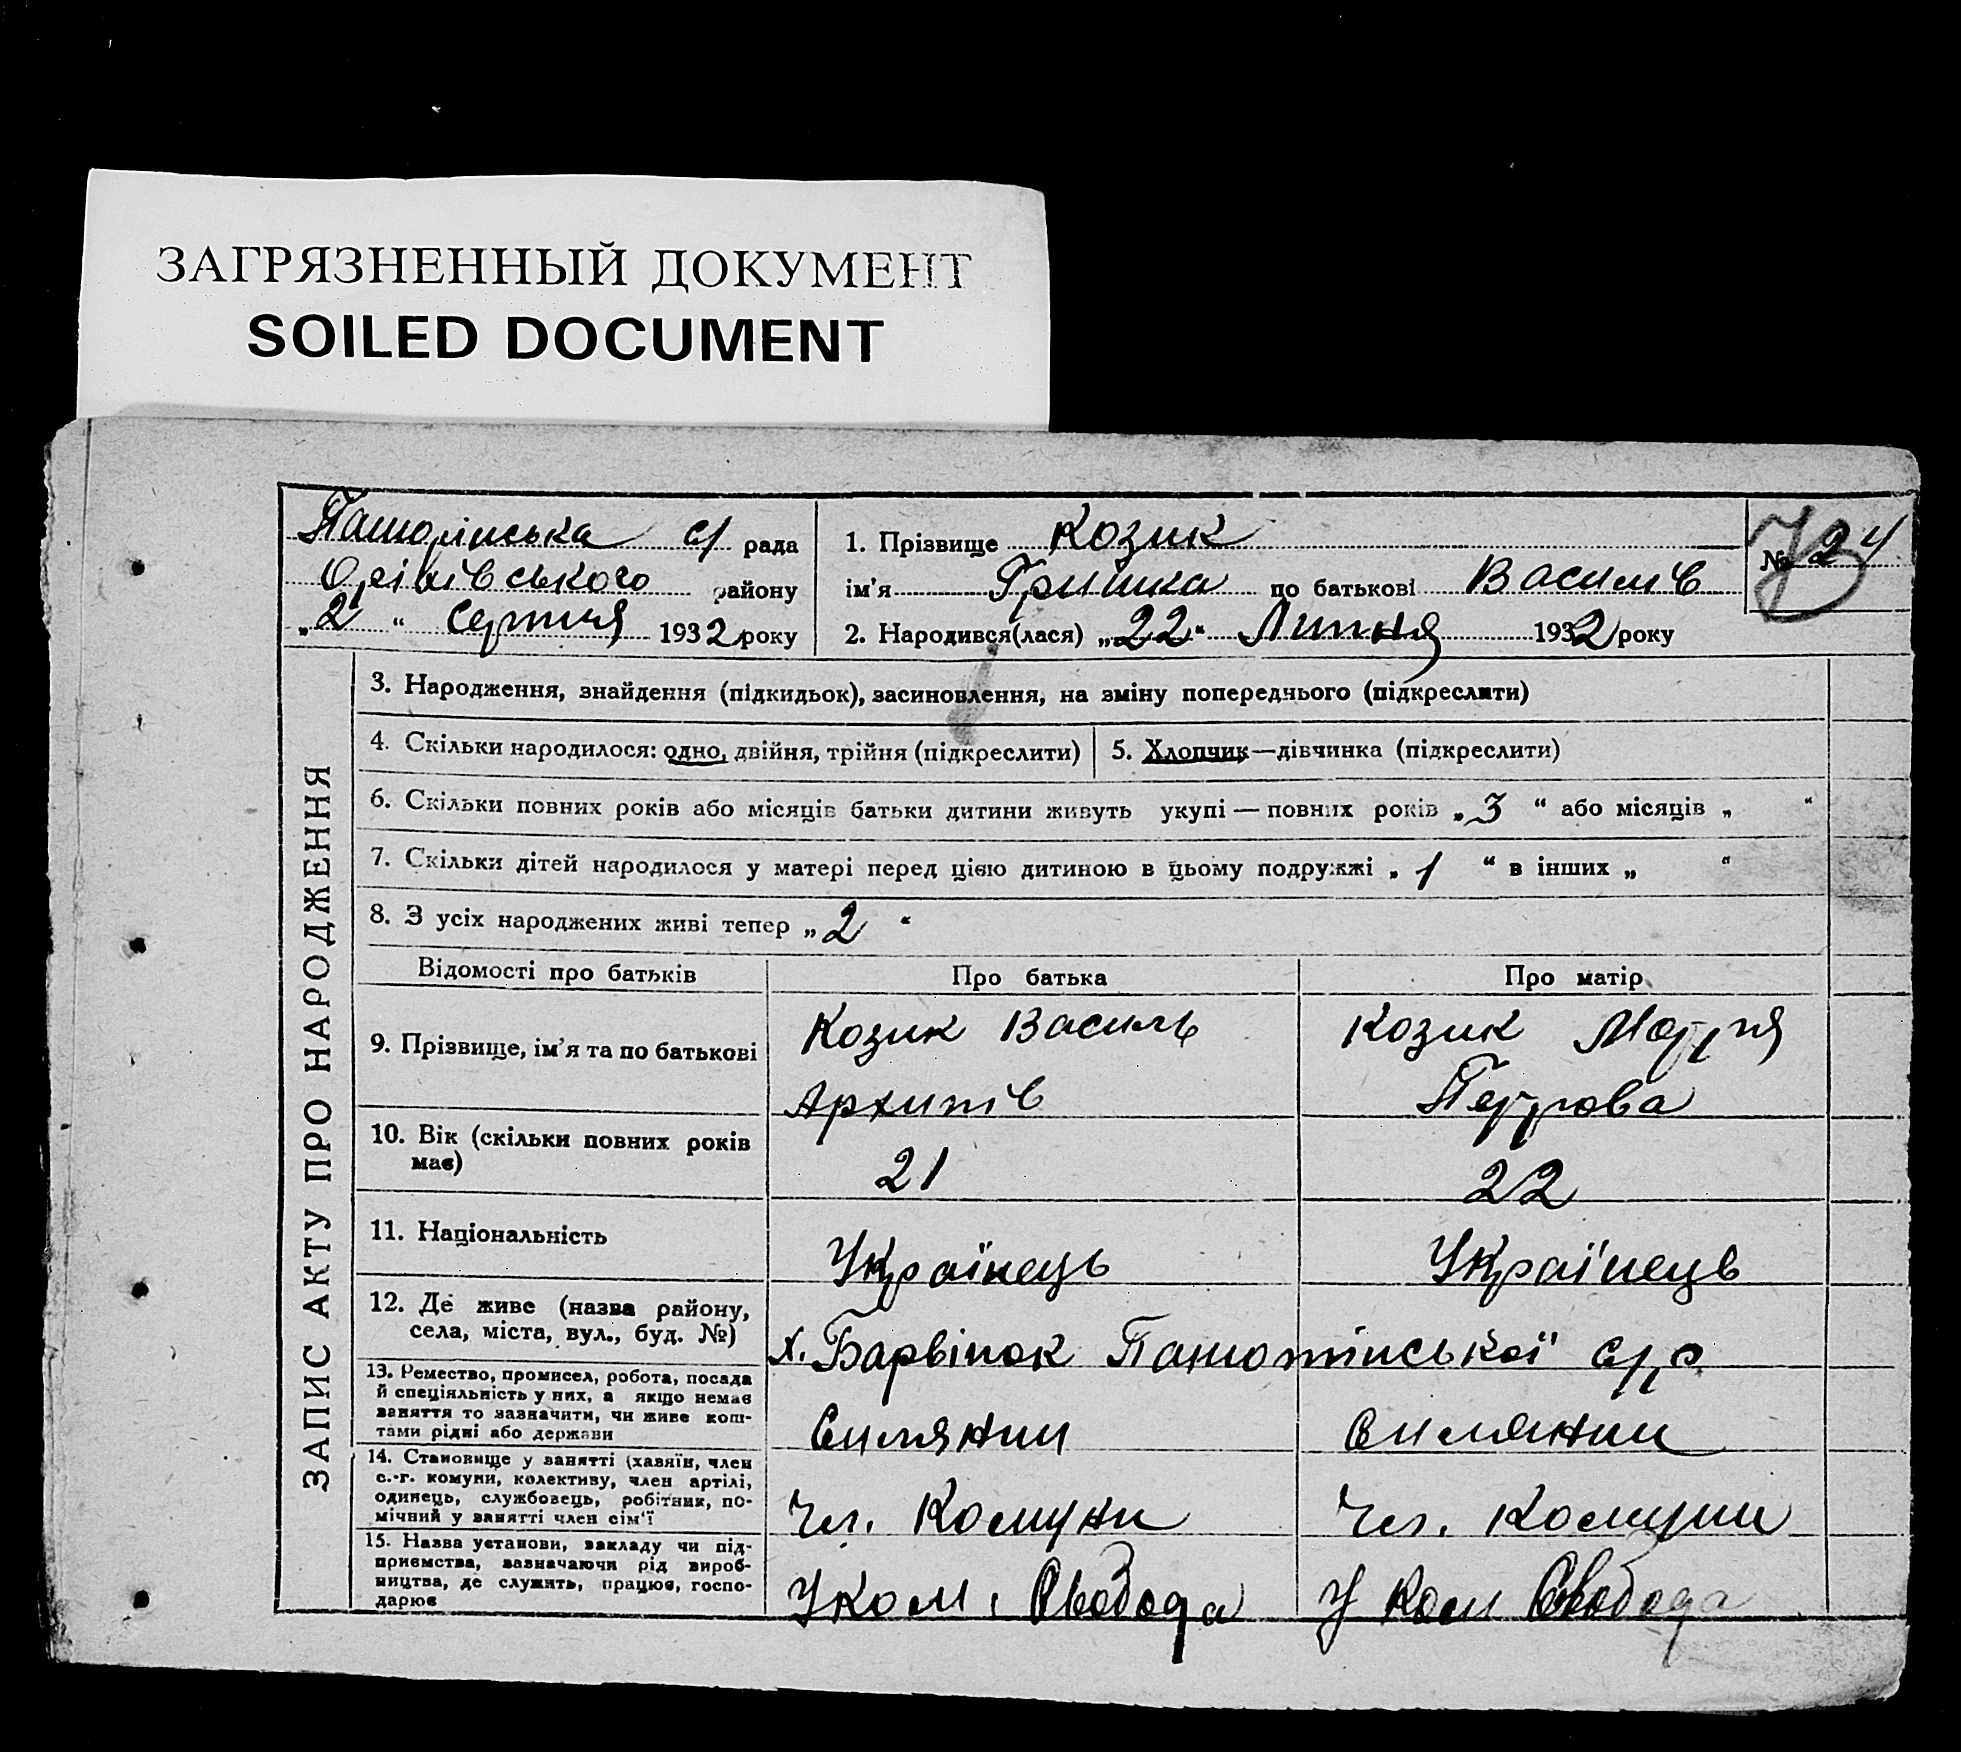 ЗАГРЯЗНЕННЫЙ ДОКУМЕНТ
SOILED DOCUMENT
с/ рада
району
„2“ Серпня 1932 року
1. Прізвище Козик
ім'я Гришка по батькові Василів
2. Народився(лася) „22“ Липня 1932 року
№ 24
ЗАПИС АКТУ ПРО НАРОДЖЕННЯ
3. Народження, знайдення (підкидьок), засиновлення, на зміну попереднього (підкреслити)
4. Скільки народилося: одно, двійня, трійня (підкреслити)
5. Хлопчик—дівчинка (підкреслити)
6. Скільки повних років або місяців батьки дитини живуть укупі — повних років „3“ або місяців „ “
7. Скільки дітей народилося у матері перед цією дитиною в цьому подружжі „1“ в інших „ “
8. З усіх народжених живі тепер „2“
Відомості про батьків Про батька Про матір
9. Прізвище, ім'я та по батькові
Козик Василь
Архипів
Козик Мотря
Петрова
10. Вік (скільки повних років
має)
21
22
11. Національність
Українець
Українець
12. Де живе (назва району,
села, міста, вул., буд. №)
х. Барвінок Панютинської с/р
13. Ремество, промисел, робота, посада
й спеціяльність у них, а якщо немає
заняття то зазначити, чи живе кош-
тами рідні або держави
Силянин
Силянин
14. Становище у занятті (хазяїн, член
с.-г. комуни, колективу, член артілі,
одинець, службовець, робітник, по-
мічний у занятті член сім'ї
Чл. Комуни
Чл. Комуни
15. Назва установи, закладу чи під-
приємства, зазначаючи рід вироб-
ництва, де служить, працює, госпо-
дарює
У ком. Свобода
У Ком Свобода